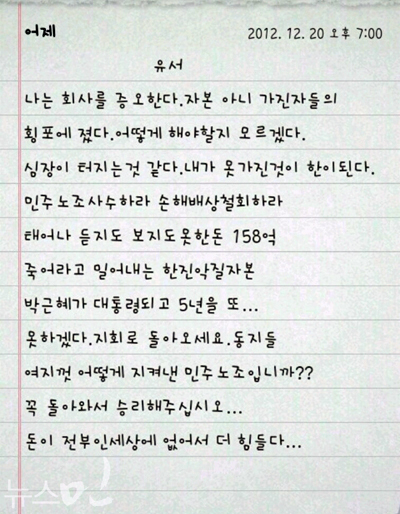 어제 2012. 12. 20 오후 7:00
유서
나는 회사를 증오한다.자본 아니 가진자들의
횡포에 졌다.어떻게 해야할지 모르겠다.
심장이 터지는것 같다.내가 못가진것이 한이된다.
민주노조사수하라 손해배상철회하라
태어나 듣지도 보지도못한돈 158억
죽어라고 밀어내는 한진악질자본
박근혜가 대통령되고 5년을 또...
못하겠다.지회로 돌아오세요.동지들
여지껏 어떻게 지켜낸 민주노조입니까??
꼭 돌아와서 승리해주십시오...
돈이 전부인세상에 없어서 더 힘들다...
뉴스민